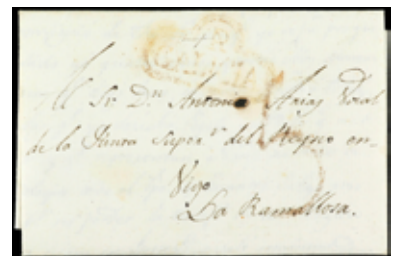 Al Sr. Dn. Antonio Arias Vocal
de la Junta Super.r del Reyno en
Vigo
La Ramallosa.